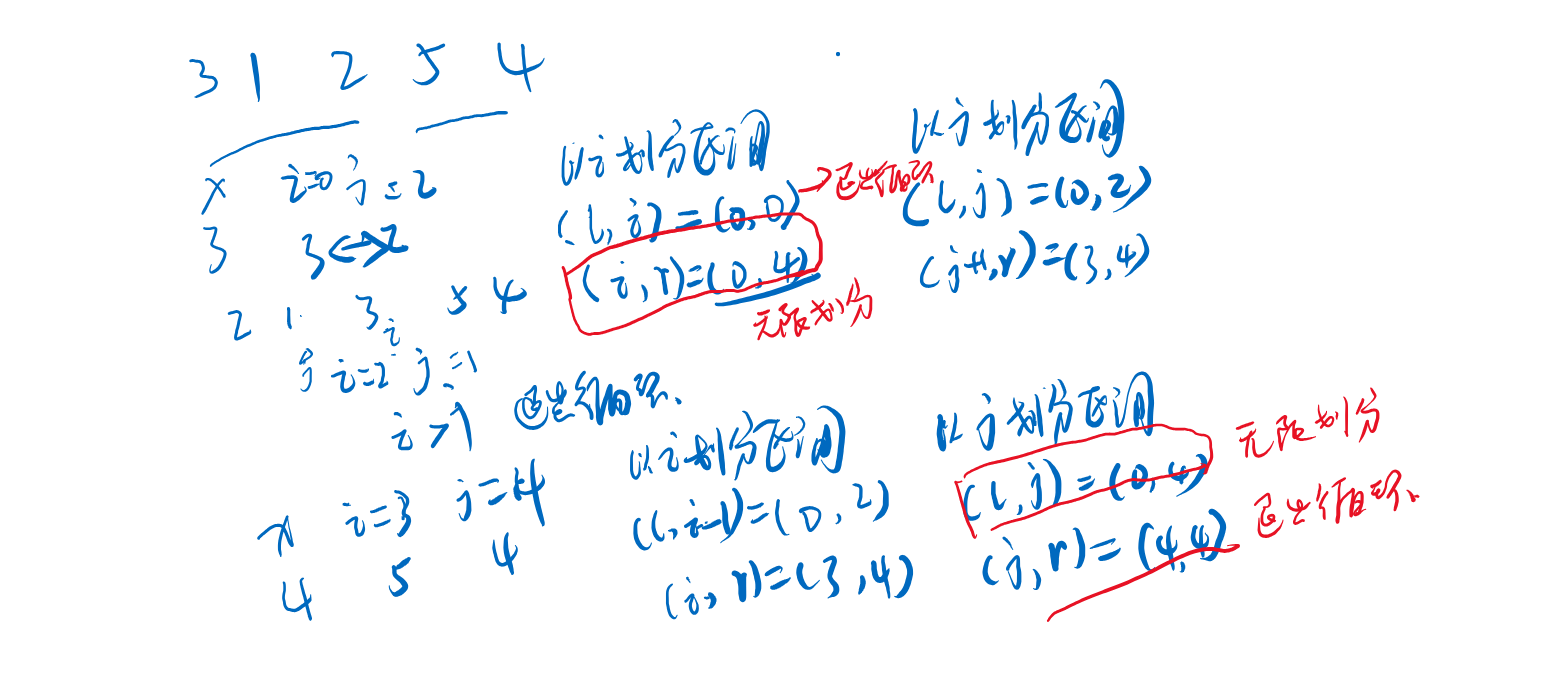 3 1 2 5 4
x i=0 j=2
3 3↔2
2 1 3 5 4
i
j i=2 j=1
i>j 退出循环、
以i划分区间
(l,i)=(0,0)→退出循环
(i,r)=(0,4)
无限划分
以j划分区间
(l,j)=(0,2)
(j+1,r)=(3,4)
x i=3 j=4
4 5 4
以i划分区间
(l,i-1)=(0,2)
(i,r)=(3,4)
以j划分区间
(l,j)=(0,4) 无限划分
(j,r)=(4,4) 退出循环、